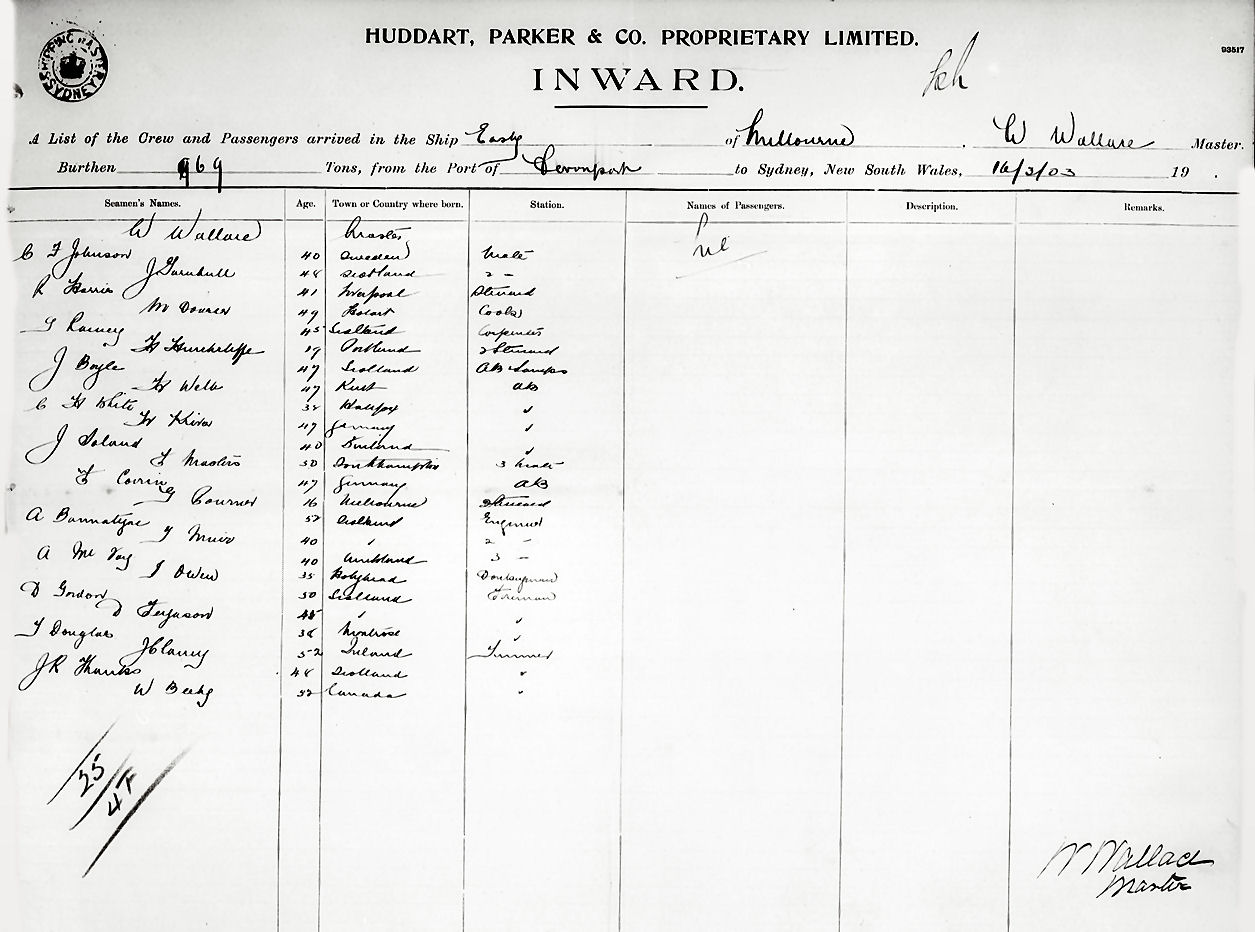 SHIPPING MASTER SYDNEY
HUDDART, PARKER & CO. PROPRIETARY LIMITED.
93517
INWARD.
A List of the Crew and Passengers arrived in the Ship Easby of Melbourne. W Wallace Master.
Burthen 969 Tons, from the Port of Devonport to Sydney, New South Wales, 16/3/03 19 .
Seamen's Names. Age. Town or Country where born. Station. Names of Passengers. Description. Remarks.
W Wallace Master Nil
C F Johnson 40 Sweden Mate
J Turnbull 48 Scotland 2 -
R Harris 41 Liverpool Steward
49 Hobart Cook
45 Scotland Carpenter
H Hinchcliffe 19 Portland 2 Steward
J Boyle 47 Scotland AB Lamps
H Webb 47 Kent AB
C H White 32 Halifax "
H 47 Germany "
J 40 "
F Masters 50 Southampton 3 Mate
F 47 Germany AB
G 16 Melbourne Steward
A Bannatyne 52 Scotland Engineer
Muir 40 " 2 -
A Mc 40 3 -
J Owen 35 Holyhead Donkeyman
D Gordon 50 Scotland Fireman
D Ferguson 45 " "
T Douglas 38 Montrose "
J Clancy 52 Ireland Trimmer
J R 48 Scotland "
W 52 Canada "
25/47
W Wallace
Master